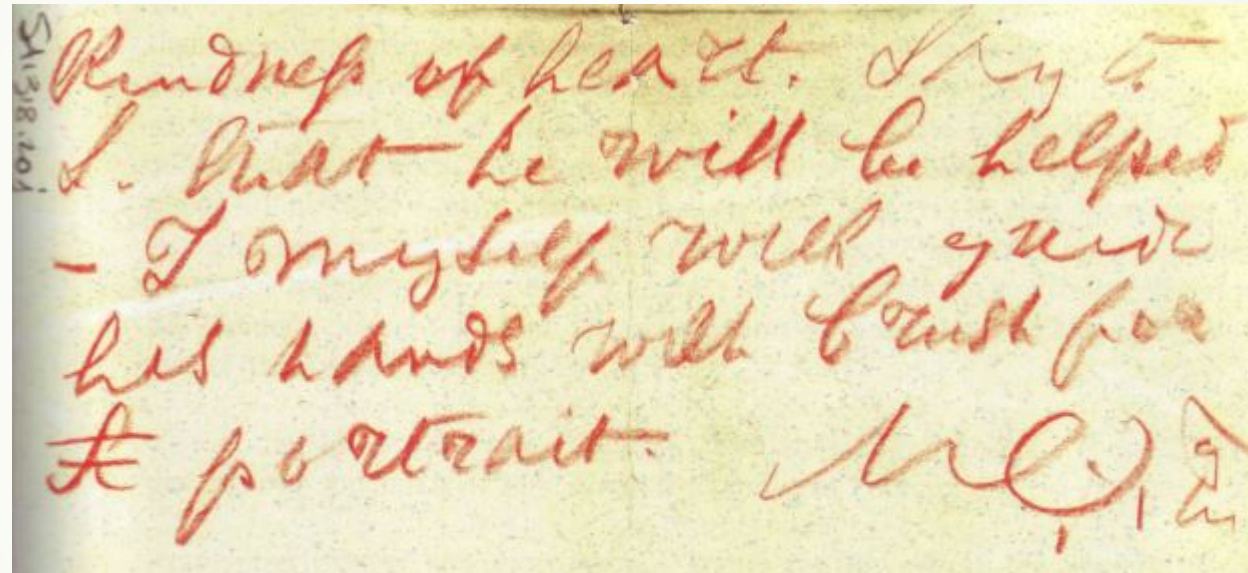 Kindness of heart. Say to
S. that he will be helped
- I myself will guide
his hands with brush for
A portrait.